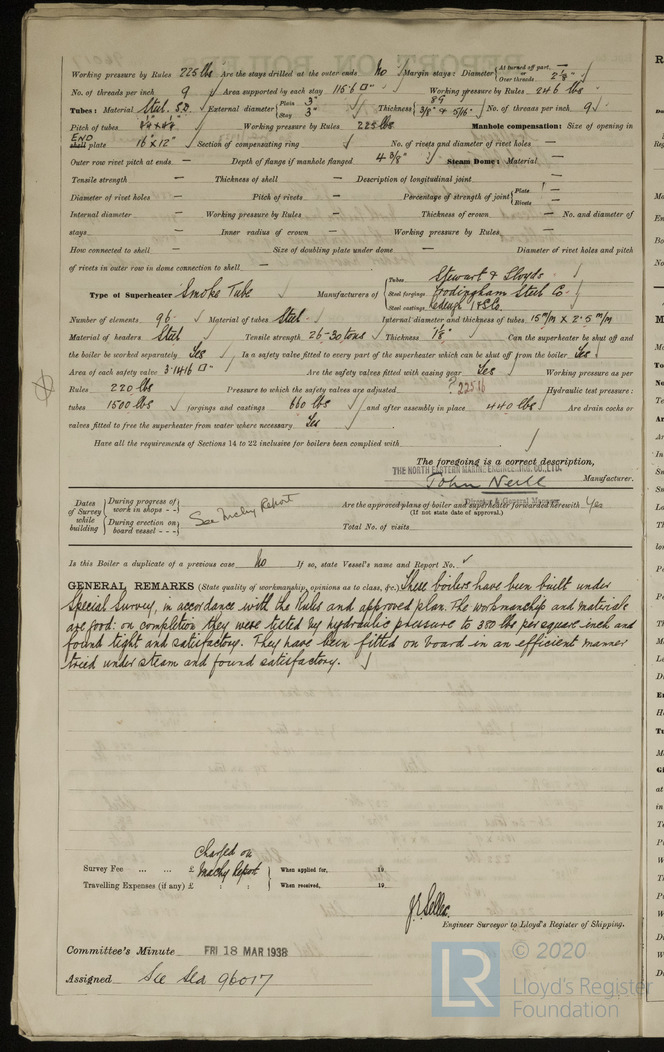 Working pressure by Rules 225 lbs Are the stays drilled at the outer ends No Margin stays: Diameter { At turned off part, — Over threads 2 1/8" }
No. of threads per inch 9 Area supported by each stay 115.6 □" Working pressure by Rules 246 lbs
Tubes: Material Steel S.D. External diameter { Plain 3" Stay 3" Thickness { 8G 3/8" & 5/16" No. of threads per inch 9
Pitch of tubes Working pressure by Rules 225 lbs Manhole compensation: Size of opening in
END shell plate 16" x 12" Section of compensating ring — No. of rivets and diameter of rivet holes —
Outer row rivet pitch at ends — Depth of flange if manhole flanged 4 3/8" Steam Dome: Material —
Tensile strength — Thickness of shell — Description of longitudinal joint —
Diameter of rivet holes — Pitch of rivets — Percentage of strength of joint { Plate — Rivets —
Internal diameter — Working pressure by Rules — Thickness of crown — No. and diameter of
stays — Inner radius of crown — Working pressure by Rules —
How connected to shell — Size of doubling plate under dome — Diameter of rivet holes and pitch
of rivets in outer row in dome connection to shell —
Type of Superheater Smoke Tube Manufacturers of { Tubes Stewart & Lloyds Steel forgings Frodingham Steel Co. Steel castings
Number of elements 96 Material of tubes Steel Internal diameter and thickness of tubes 15 m/m x 2.5 m/m
Material of headers Steel Tensile strength 26-30 tons Thickness 7/8" Can the superheater be shut off and
the boiler be worked separately Yes Is a safety valve fitted to every part of the superheater which can be shut off from the boiler Yes
Area of each safety valve 3.1416 □" Are the safety valves fitted with easing gear Yes Working pressure as per
Rules 220 lbs Pressure to which the safety valves are adjusted ? 225 lb Hydraulic test pressure:
tubes 1500 lbs forgings and castings 660 lbs and after assembly in place 440 lbs Are drain cocks or
valves fitted to free the superheater from water where necessary Yes
Have all the requirements of Sections 14 to 22 inclusive for boilers been complied with
The foregoing is a correct description,
THE NORTH EASTERN MARINE ENGINEERING CO., LTD.
John Neill Manufacturer.
Director & General Manager
Dates of Survey while building { During progress of work in shops - - During erection on board vessel - - - } See Mchy Report
Are the approved plans of boiler and superheater forwarded herewith Yes
(If not state date of approval.)
Total No. of visits
Is this Boiler a duplicate of a previous case No If so, state Vessel's name and Report No.
GENERAL REMARKS (State quality of workmanship, opinions as to class, &c.) These boilers have been built under
Special Survey, in accordance with the Rules and approved plan. The workmanship and materials
are good: on completion they were tested by hydraulic pressure to 380 lbs per square inch and
found tight and satisfactory. They have been fitted on board in an efficient manner
tried under steam and found satisfactory.
Charged on
Survey Fee ... ... £ Machy Report { When applied for, 19
Travelling Expenses (if any) £ : : { When received, 19
Engineer Surveyor to Lloyd's Register of Shipping.
Committee's Minute FRI 18 MAR 1938
Assigned See Sld 96017
LR © 2020
Lloyd's Register
Foundation